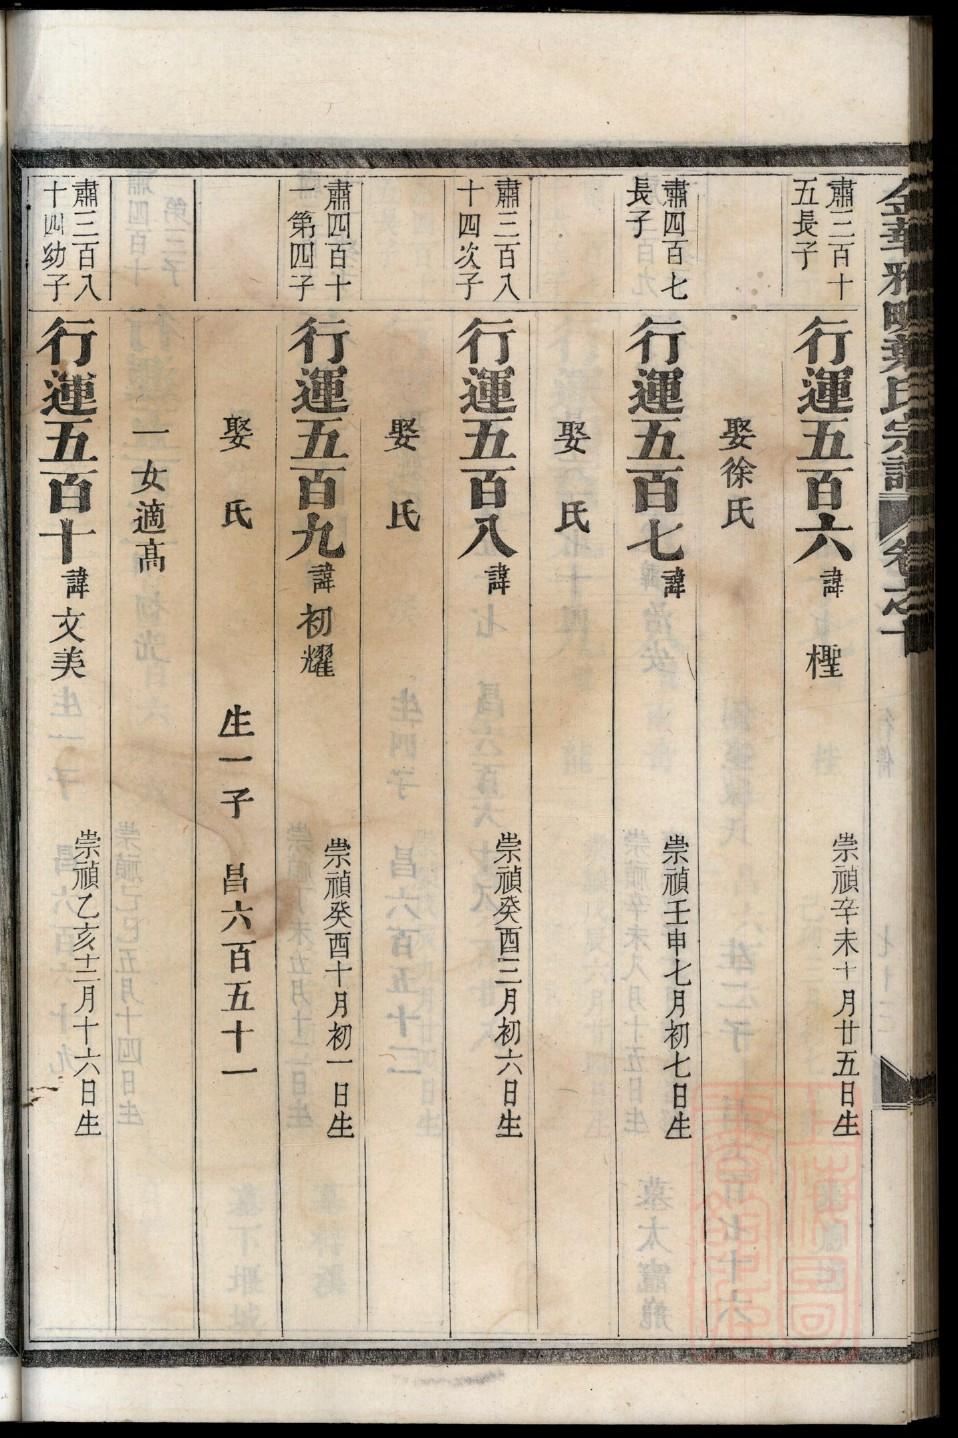 金華雅畈葉氏宗譜 卷之十
肅三百十
五長子
行運五百六 諱 檉 崇禎辛未十月廿五日生
娶徐氏
肅四百七
長子
行運五百七 諱 崇禎壬申七月初七日生
娶 氏
肅三百八
十四次子
行運五百八 諱 崇禎癸酉三月初六日生
娶 氏
肅四百十
一第四子
行運五百九 諱 初耀 崇禎癸酉十月初一日生
娶 氏 生一子 昌六百五十一
一女適高
肅三百八
十四幼子
行運五百十 諱 文美 崇禎乙亥十二月十六日生